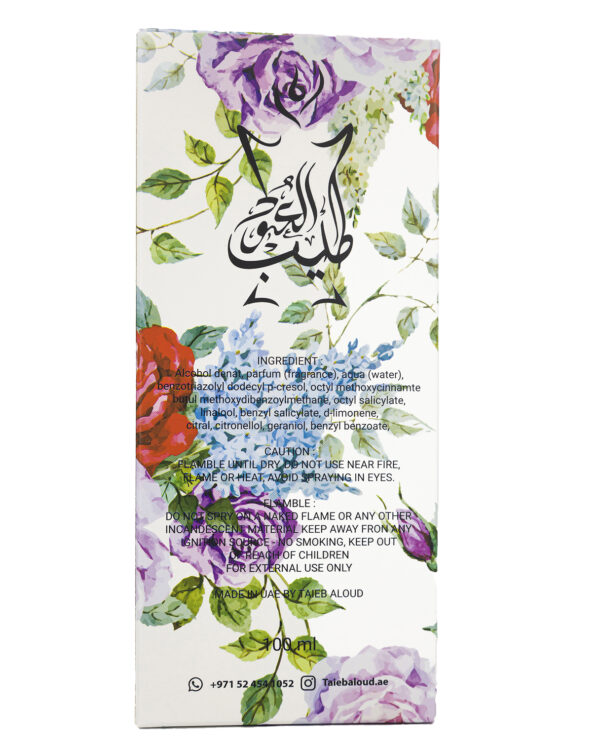 طيب العود
INGREDIENT :
1. Alcohol denat, parfum (fragrance), aqua (water),
benzotriazolyl dodecyl p-cresol, octyl methoxycinnamte
butul methoxydibenzoylmethane, octyl salicylate,
linalool, benzyl salicylate, d-limonene,
citral, citronellol, geraniol, benzyl benzoate,
CAUTION :
FLAMBLE UNTIL DRY, DO NOT USE NEAR FIRE,
FLAME OR HEAT, AVOID SPRAYING IN EYES.
FLAMBLE :
DO NOT SPRY ON A NAKED FLAME OR ANY OTHER
INCANDESCENT MATERIAL KEEP AWAY FRON ANY
IGNITION SOURCE - NO SMOKING, KEEP OUT
OF REACH OF CHILDREN
FOR EXTERNAL USE ONLY
MADE IN UAE BY TAIEB ALOUD
100 ml
+971 52 454 1052 Taiebaloud.ae